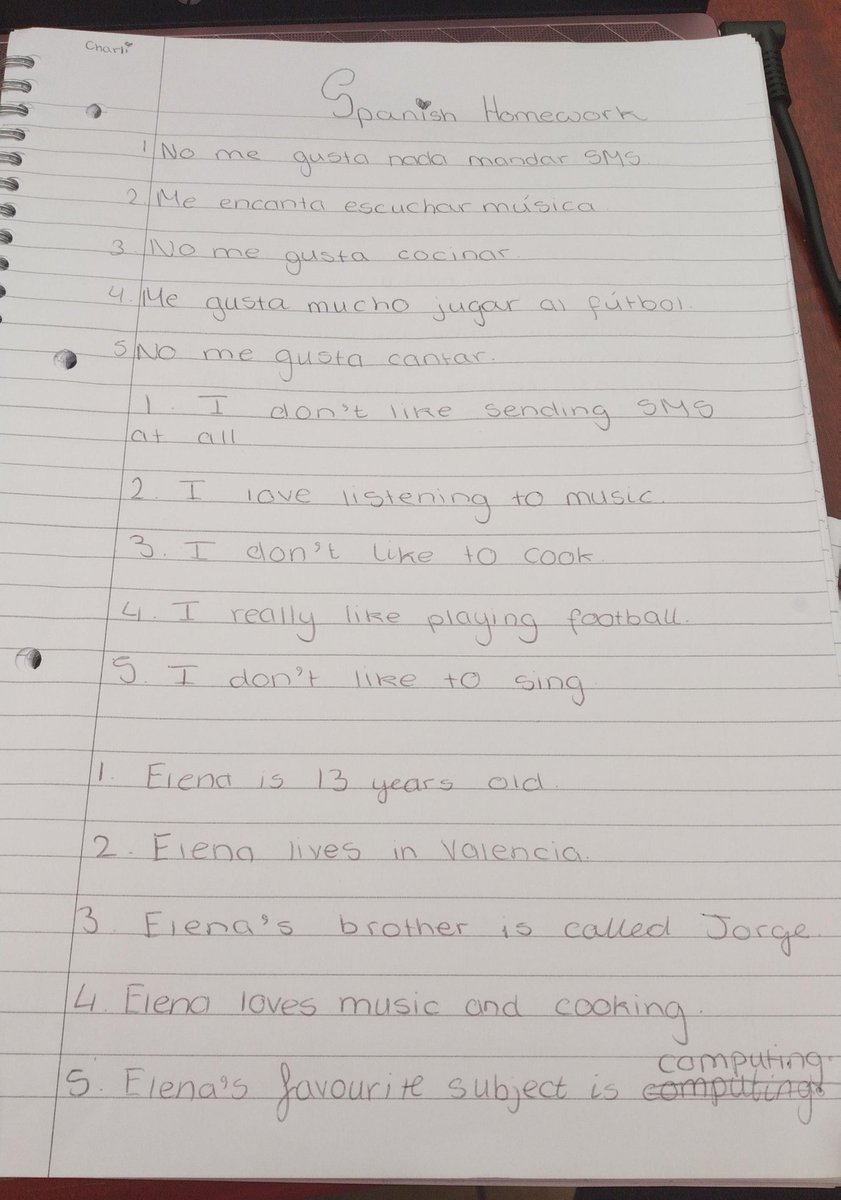 Charli
Spanish Homework
1 No me gusta nada mandar SMS
2 Me encanta escuchar música
3. No me gusta cocinar.
4. Me gusta mucho jugar al fútbol.
5 No me gusta cantar.
1. I don't like sending SMS
at all
2. I love listening to music.
3. I don't like to cook.
4. I really like playing football.
5. I don't like to sing
1. Elena is 13 years old.
2. Elena lives in Valencia.
3. Elena's brother is called Jorge.
4. Elena loves music and cooking.
computing.
5. Elena's favourite subject is computing